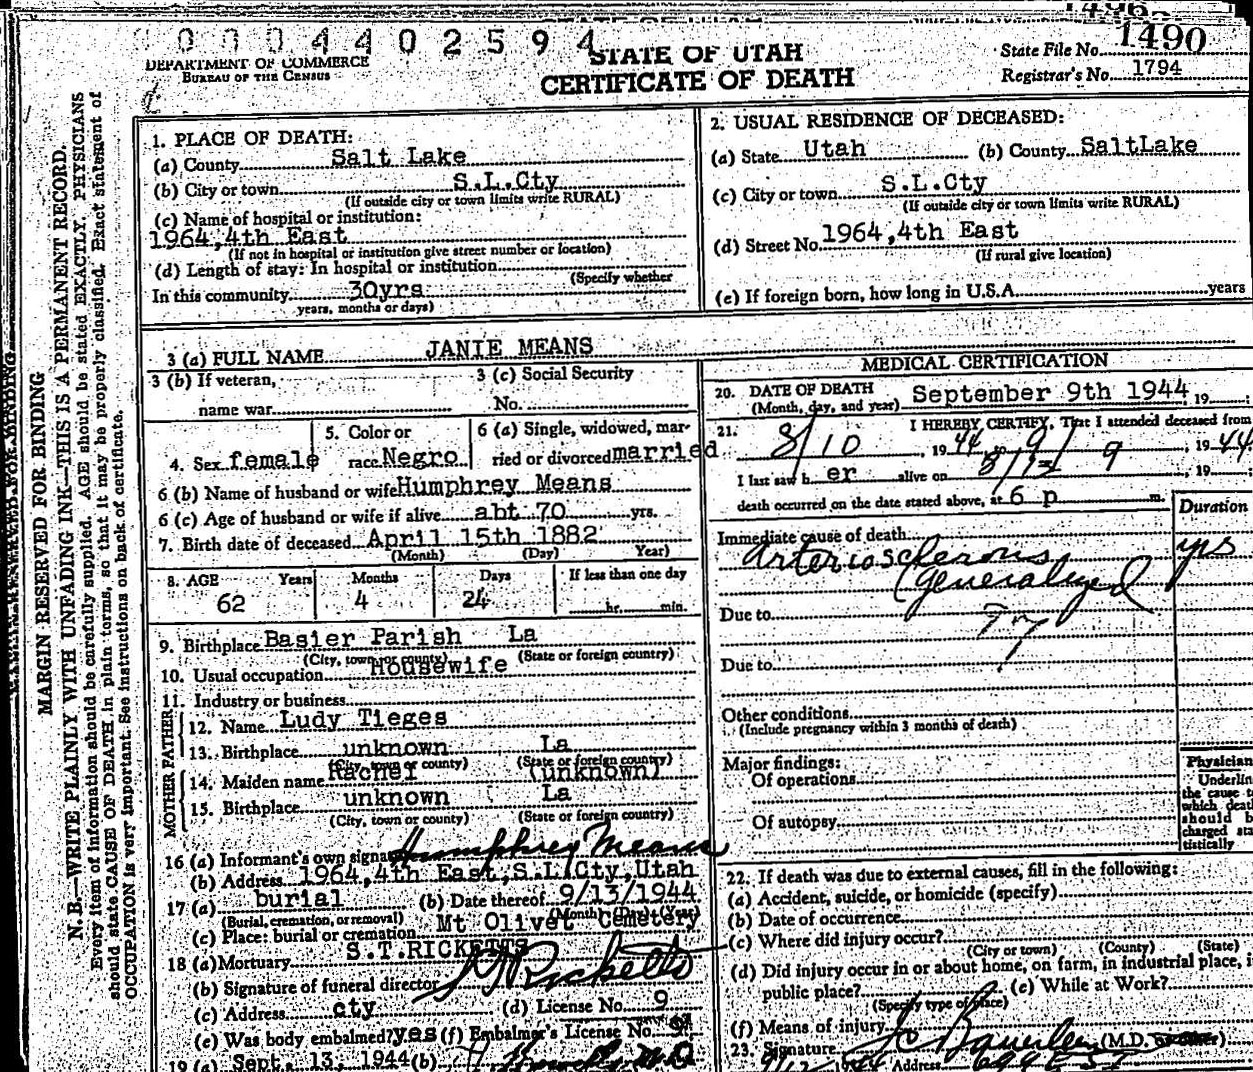 0 0 0 4 4 0 2 5 9 4
1490
STATE OF UTAH
CERTIFICATE OF DEATH
DEPARTMENT OF COMMERCE
BUREAU OF THE CENSUS
State File No. 1490
Registrar's No. 1794
MARGIN RESERVED FOR BINDING
N. B.—WRITE PLAINLY WITH UNFADING INK—THIS IS A PERMANENT RECORD.
Every item of information should be carefully supplied. AGE should be stated EXACTLY. PHYSICIANS
should state CAUSE OF DEATH in plain terms, so that it may be properly classified. Exact statement of
OCCUPATION is very important. See instructions on back of certificate.
1. PLACE OF DEATH:
(a) County Salt Lake
(b) City or town S.L.Cty
(If outside city or town limits write RURAL)
(c) Name of hospital or institution:
1964,4th East
(If not in hospital or institution give street number or location)
(d) Length of stay: In hospital or institution
(Specify whether
In this community 30yrs
years, months or days)
2. USUAL RESIDENCE OF DECEASED:
(a) State Utah (b) County SaltLake
(c) City or town S.L.Cty
(If outside city or town limits write RURAL)
(d) Street No. 1964,4th East
(If rural give location)
(e) If foreign born, how long in U.S.A. years
3 (a) FULL NAME JANIE MEANS
3 (b) If veteran, 3 (c) Social Security
name war No.
4. Sex female 5. Color or race Negro 6 (a) Single, widowed, married or divorced married
6 (b) Name of husband or wife Humphrey Means
6 (c) Age of husband or wife if alive abt 70 yrs.
7. Birth date of deceased April 15th 1882
(Month) (Day) Year)
8. AGE Years Months Days If less than one day
62 4 24 hr. min.
9. Birthplace Basier Parish La
(City, town or county) (State or foreign country)
10. Usual occupation Housewife
11. Industry or business
FATHER
12. Name Ludy Tieges
13. Birthplace unknown La
(City, town or county) (State or foreign country)
MOTHER
14. Maiden name Rachel (unknown)
15. Birthplace unknown La
(City, town or county) (State or foreign country)
16 (a) Informant's own signature Humphrey Means
(b) Address 1964,4th East,S.L.Cty,Utah
17 (a) burial (b) Date thereof 9/13/1944
(Burial, cremation, or removal) (Month) (Day) (Year)
(c) Place: burial or cremation Mt Olivet Cemetery
18 (a) Mortuary S.T.RICKETTS
(b) Signature of funeral director S T Ricketts
(c) Address cty (d) License No. 9
(e) Was body embalmed? yes (f) Embalmer's License No.
19 (a) Sept. 13, 1944 (b)
MEDICAL CERTIFICATION
20. DATE OF DEATH September 9th 1944, 19
(Month, day, and year)
21. I HEREBY CERTIFY, That I attended deceased from
8/10, 19 44 to 9/9, 19 44.
I last saw h er alive on , 19
death occurred on the date stated above, at 6 p m.
Duration
Immediate cause of death
Arteriosclerosis yrs
(generalized)
Due to
Due to
Other conditions
(Include pregnancy within 3 months of death)
Major findings:
Of operations
Of autopsy
Physician
Underlin
the cause t
which deat
should b
charged sta
tistically
22. If death was due to external causes, fill in the following:
(a) Accident, suicide, or homicide (specify)
(b) Date of occurrence
(c) Where did injury occur?
(City or town) (County) (State)
(d) Did injury occur in or about home, on farm, in industrial place, i
public place? (e) While at Work?
(Specify type of place)
(f) Means of injury
23. Signature (M.D. or other)
Address